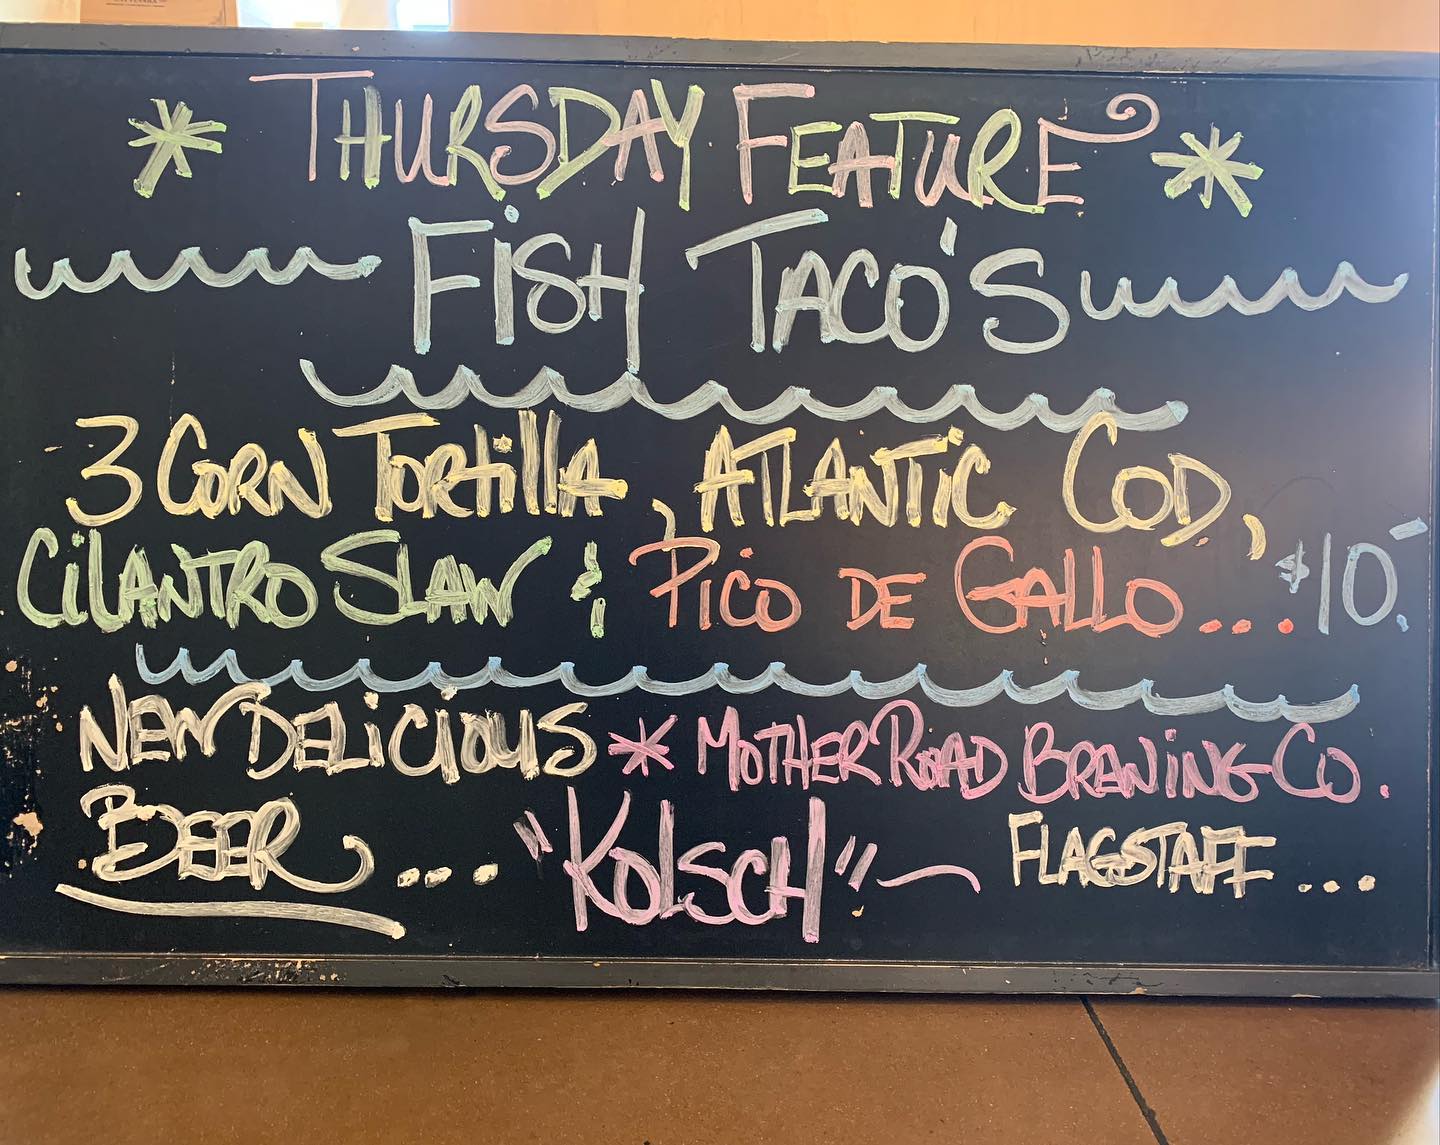 * THURSDAY FEATURE *
FISH TACO'S
3 CORN TORTILLA, ATLANTIC COD,
CILANTRO SLAW & PICO DE GALLO... $10.-
NEW DELICIOUS * MOTHER ROAD BREWING CO.
BEER... "KOLSCH" ~ FLAGSTAFF...